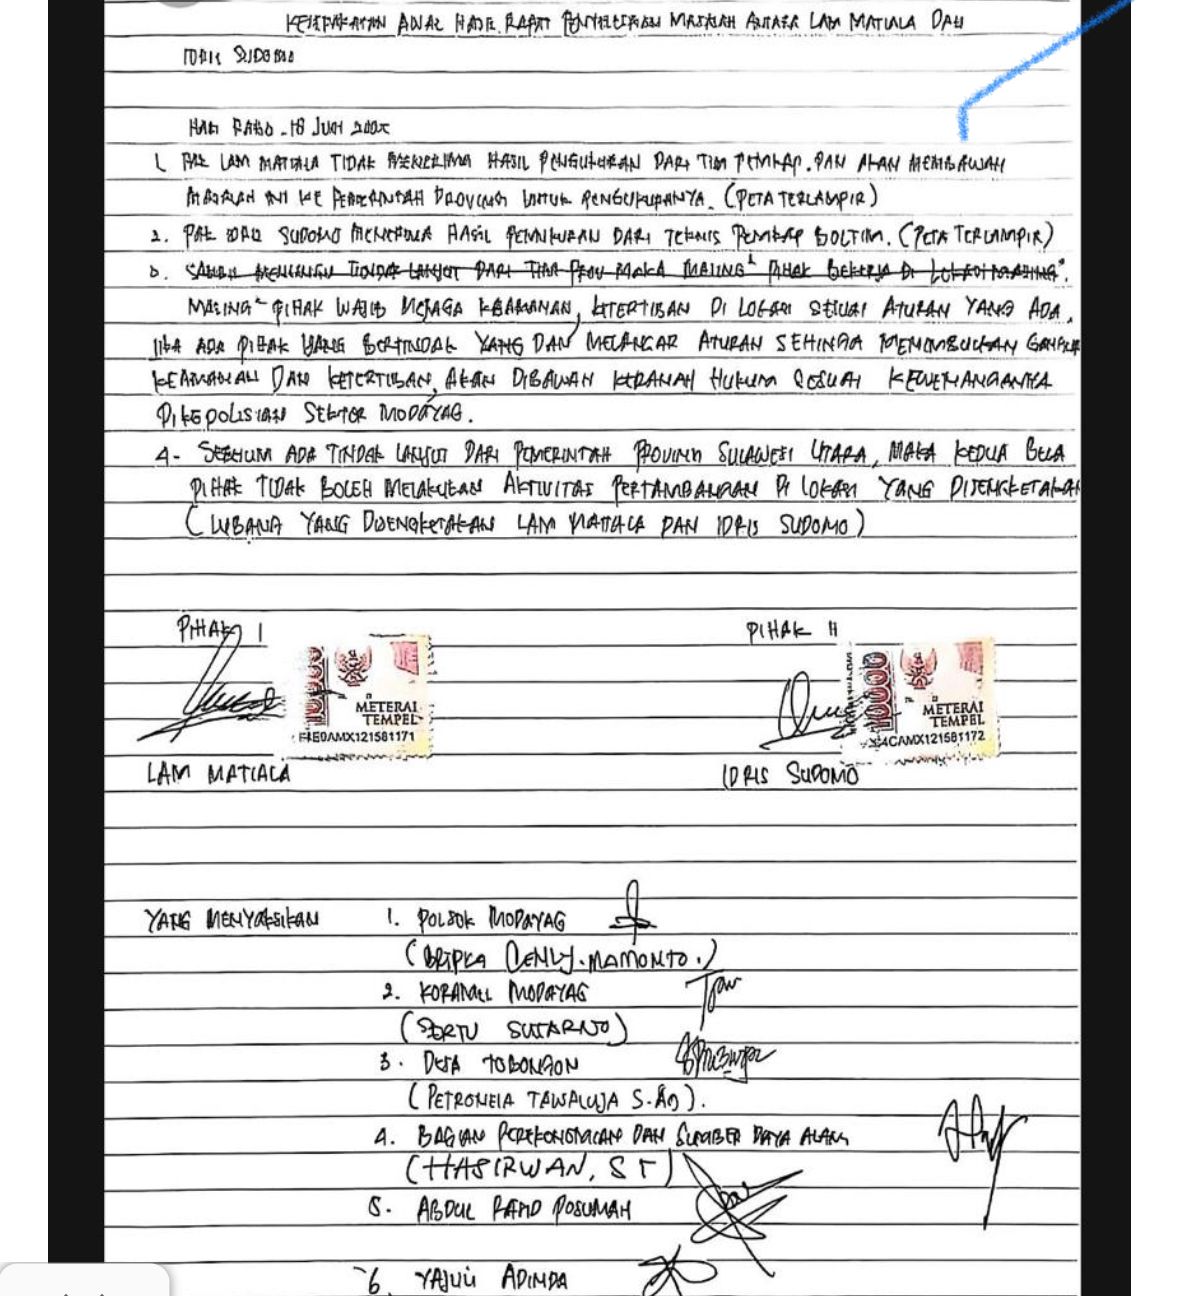 KESEPAKATAN AWAL HASIL RAPAT PENYELESAIAN MASALAH ANTARA LAM MATIALA DAN
IDRIS SUDOMO
HARI RABO - 18 JUNI 2025
1. PAK LAM MATIALA TIDAK MENERIMA HASIL PENGUKURAN DARI TIM PEMKAP. DAN AKAN MEMBAWAH
MASALAH INI KE PEMERINTAH PROVINSI UNTUK PENGUKURANYA. (PETA TERLAMPIR)
2. PAK IDRIS SUDOMO MENERIMA HASIL PENGUKURAN DARI TEKNIS PEMKAP BOLTIM. (PETA TERLAMPIR)
3. SAMBIL MENUNGGU TINDAK LANJUT DARI TIM PROV MAKA MASING² PIHAK BEKERJA DI LOKASI MASING².
MASING² PIHAK WAJIB MENJAGA KEAMANAN, KETERTIBAN DI LOKASI SESUAI ATURAN YANG ADA.
JIKA ADA PIHAK YANG BERTINDAK YANG DAN MELANGAR ATURAN SEHINGA MENIMBULKAN
KEAMANAN DAN KETERTIBAN, AKAN DIBAWAH KERANAH HUKUM SESUAI KEWENANGANYA
DIKEPOLISIAN SEKTOR MODAYAG.
4. SEBELUM ADA TINDAK LANJUT DARI PEMERINTAH PROVINSI SULAWESI UTARA, MAKA KEDUA BELA
PIHAK TIDAK BOLEH MELAKUKAN AKTIVITAS PERTAMBANGAN DI LOKASI YANG DISENGKETAKAN
(LUBANG YANG DISENGKETAKAN LAM MATIALA DAN IDRIS SUDOMO)
PIHAK I PIHAK II
10000 METERAI TEMPEL 10000 METERAI TEMPEL
AMX121581171 CAMX121581172
LAM MATIALA IDRIS SUDOMO
YANG MENYAKSIKAN 1. POLSEK MODAYAG
(BRIPKA DENLY. MAMONTO.)
2. KORAMIL MODAYAG
(SERTU SUTARNO)
3. DESA TOBONGON
(PETRONELA TAWALUJA S.AG).
4. BAGIAN PEREKONOMIAN DAN SUMBER DAYA ALAM
(HASIRWAN, ST)
5. ABDUL POSUMAH
6. ADINDA